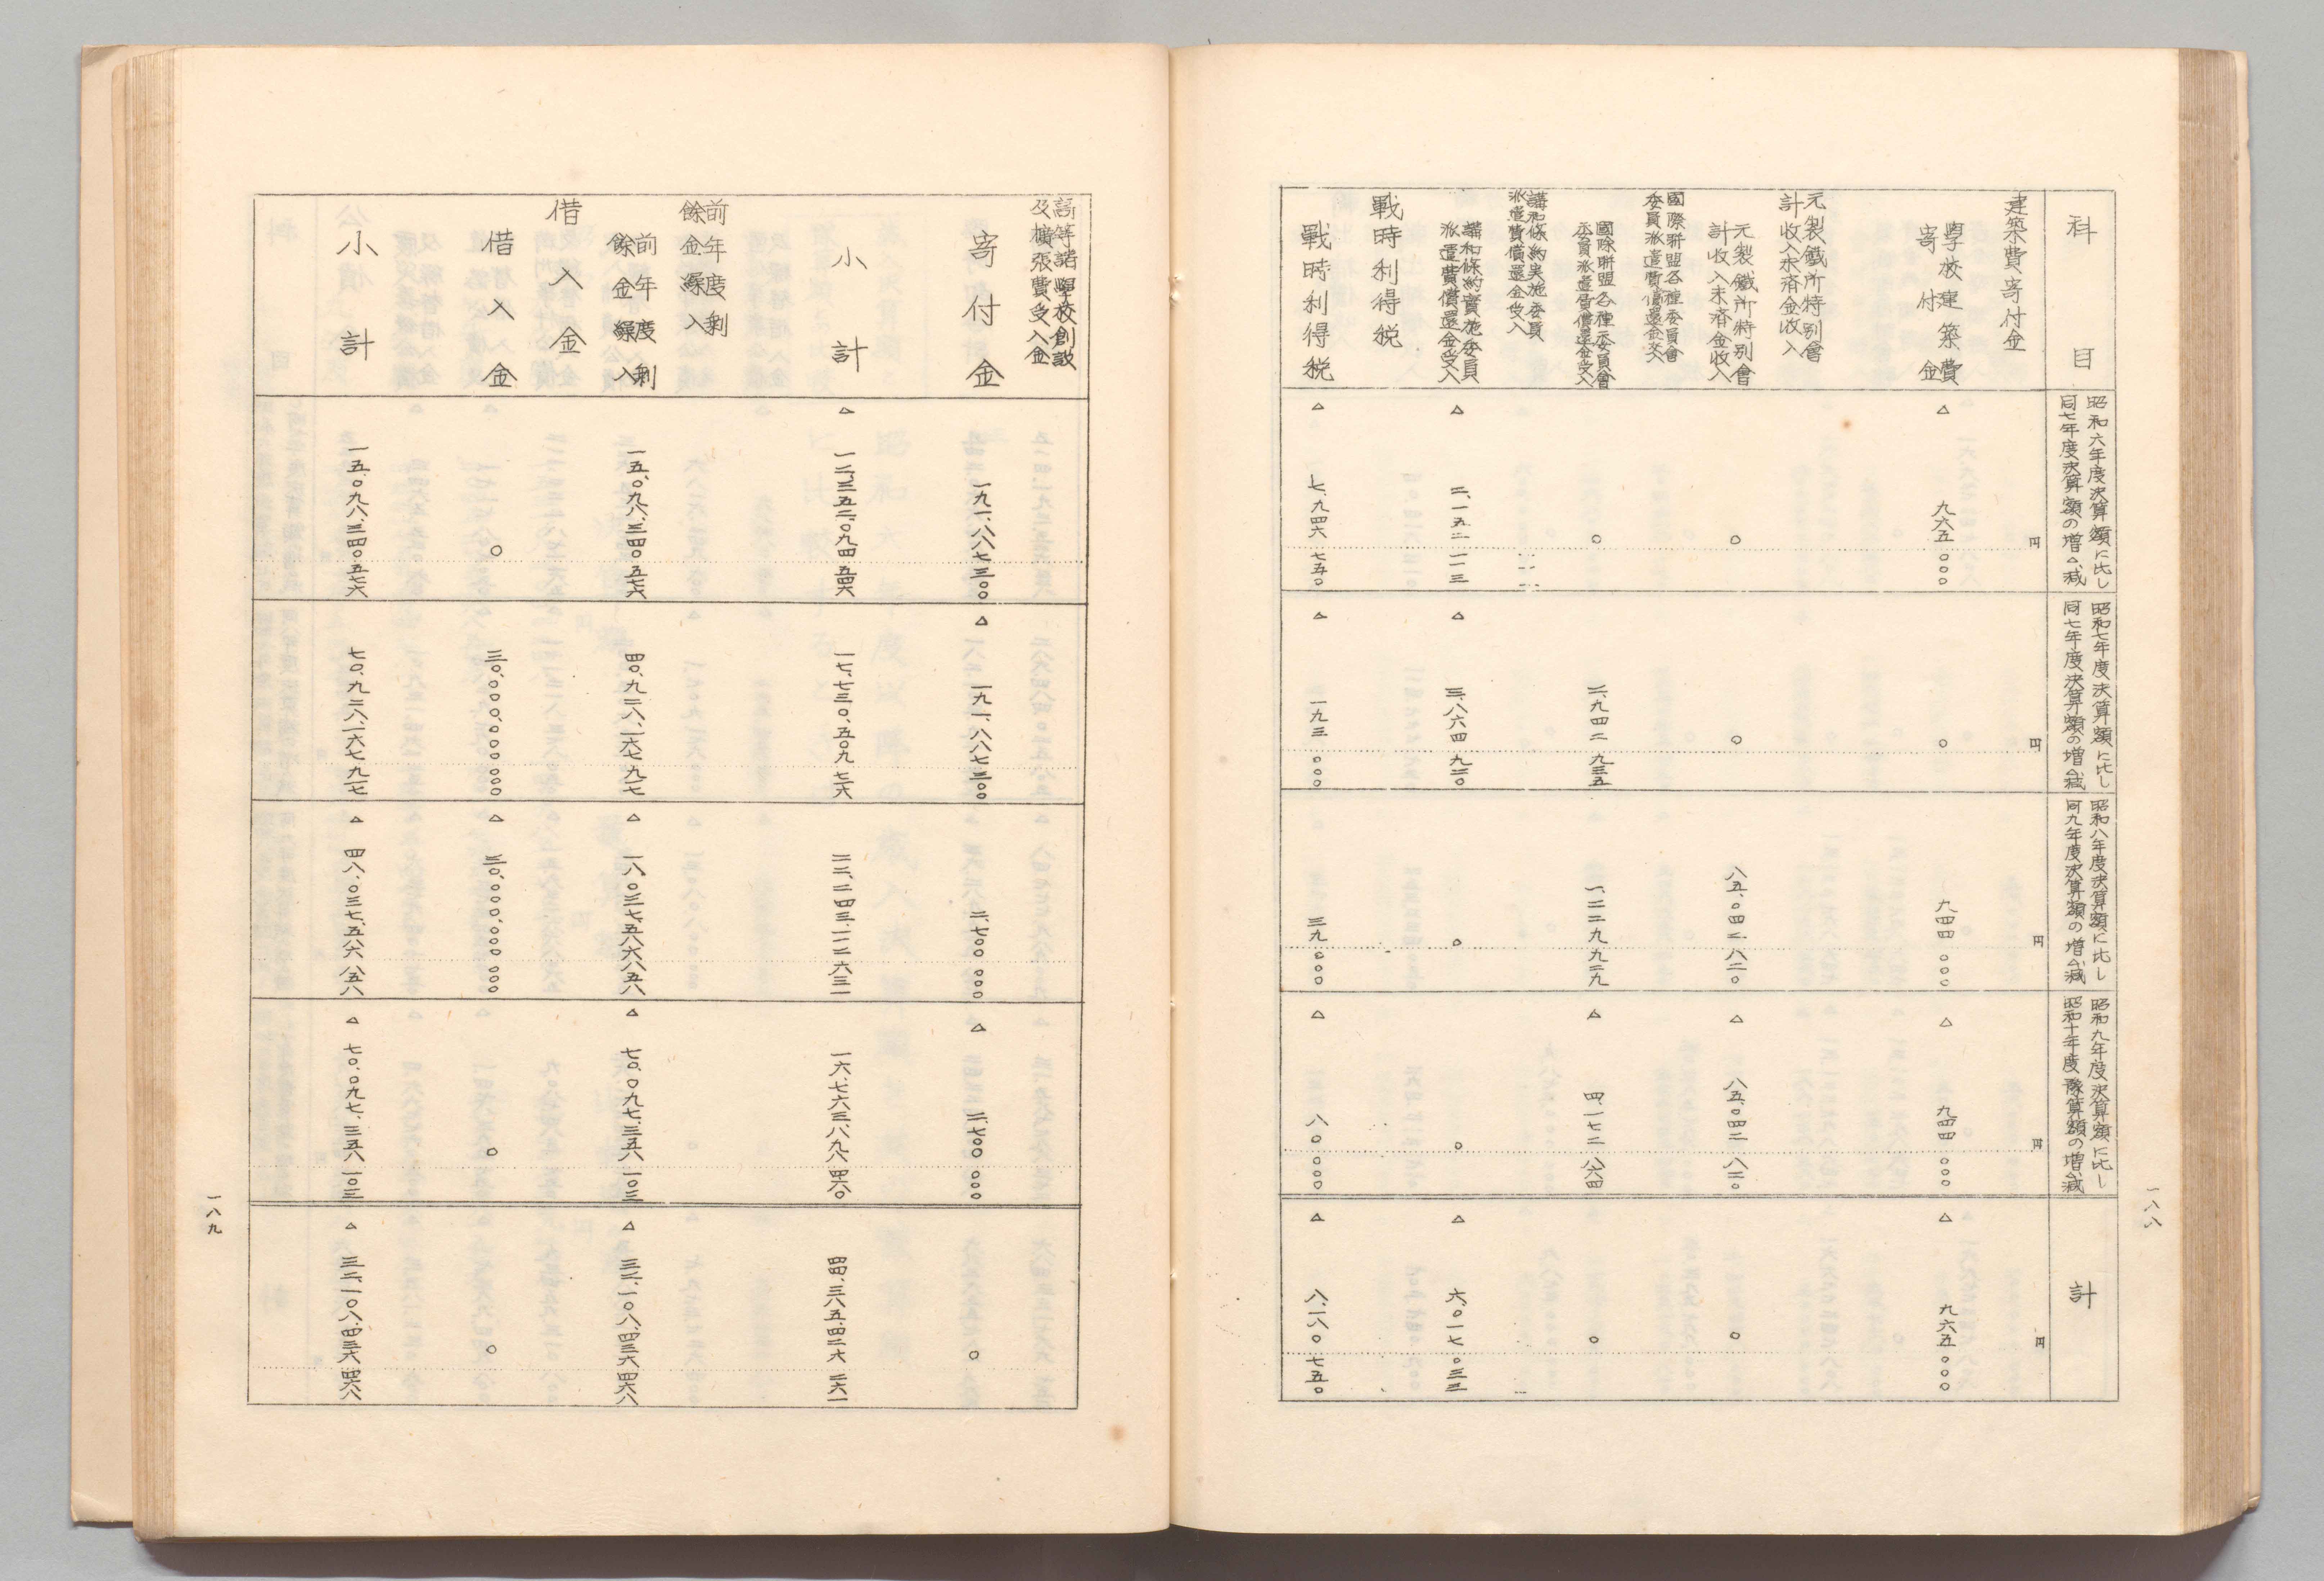 科目
昭和六年度決算額に比し
同七年度決算額の増△減
昭和七年度決算額に比し
同七年度決算額の増△減
昭和八年度決算額に比し
同九年度決算額の増△減
昭和九年度決算額に比し
昭和十年度豫算額の増△減
計
円
円
円
円
円
建築費寄付金
學校建築費
寄付金
△ 九六五 〇〇〇
〇
九四四 〇〇〇
△ 九四四 〇〇〇
△ 九六五 〇〇〇
元製鐵所特別會
計收入未済金收入
元製鐵所特別會
計收入未済金收入
〇
〇
八五、〇四二 八二〇
△ 八五、〇四二 八二〇
〇
國際聯盟各種委員會
委員派遣費償還金受入
國際聯盟各種委員會
委員派遣費償還金受入
〇
二、九四二 九三五
一、二二九 九二九
△ 四、一七二 八六四
〇
講和條約実施委員
派遣費償還金受入
講和條約實施委員
派遣費償還金受入
△ 二、一五二 一一三
△ 三、八六四 九二〇
〇
〇
△ 六、〇一七 〇三三
戰時利得税
戰時利得税
△ 七、九四六 七五〇
△ 一九三 〇〇〇
三九 〇〇〇
△ 八〇 〇〇〇
△ 八、一八〇 七五〇
一八八
高等諸學校創設
及擴張費受入金
寄付金
一九一、八八七 三〇〇
△ 一九一、八八七 三〇〇
二、七〇〇 〇〇〇
△ 二、七〇〇 〇〇〇
〇
小計
△ 一二、三五二、〇九四 五四六
一七、七三〇、五〇九 七六
二二、二四三、一一二 六三一
一六、七六三、八九八 四六〇
四四、三八五、四二六 二六一
前年度剰
餘金繰入
前年度剰
餘金繰入
一五、〇九八、三四〇 五七六
四〇、九二八、一六七 九一七
△ 一八、〇三七、五八六 八五八
△ 七〇、〇九七、三五八 一〇三
△ 三二、一〇八、四三六 四六八
借入金
借入金
〇
三〇、〇〇〇、〇〇〇 〇〇〇
△ 三〇、〇〇〇、〇〇〇 〇〇〇
〇
〇
小計
一五、〇九八、三四〇 五七六
七〇、九二八、一六七 九一七
△ 四八、〇三七、五八六 八五八
△ 七〇、〇九七、三五八 一〇三
△ 三二、一〇八、四三六 四六八
一八九